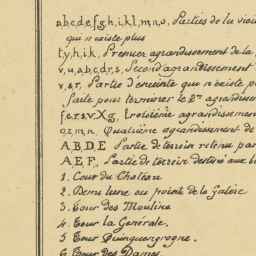 a,b,c,d,e,f,g,h,i,k,l,m,n,o, Parties de la vieil
qui n'existe plus
t,y,h,i,k, Premier agrandissement de la
v,u,a,b,c,d,r,s, Second agrandissement
v,&,r, Partie d'enceinte qui n'existe p
faite pour terminer le 2.me agrandisse
f,e,r,s,v,X,g, troisième agrandissement
o,z,m,n, Quatrième agrandissement de
A,B,D,E Partie de terrein retenu par
A,E,F, Partie de terrein destiné aux b
1. Cour du Chateau
2. Demi lune ou pointe de la Galere
3. Tour des Moulins
4. Tour la Generale
5. Tour Quinquengrogne
6. Tour des Dames